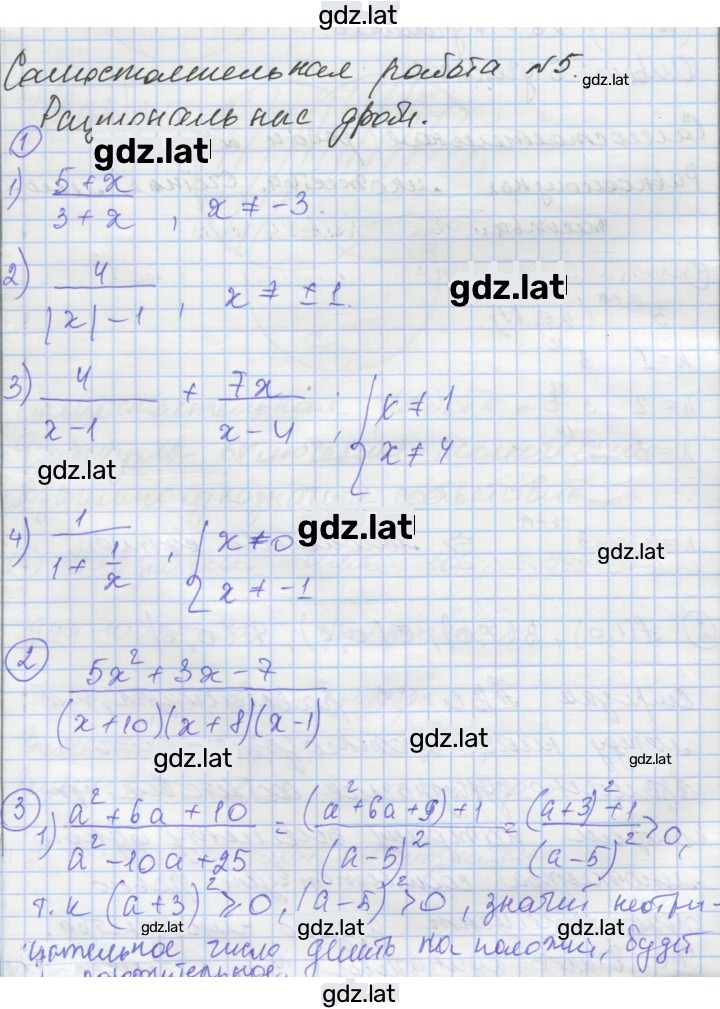 gdz.lat
Самостоятельная работа №5.
gdz.lat
Рациональные дроби.
1
gdz.lat
1) (5+x)/(3+x), x ≠ -3.
2) 4/(|x|-1), x ≠ ±1.
gdz.lat
3) 4/(x-1) + 7x/(x-4), { x ≠ 1
x ≠ 4
gdz.lat
4) 1/(1+1/x), { x ≠ 0
x ≠ -1
gdz.lat
gdz.lat
2 (5x²+3x-7)/((x+10)(x+8)(x-1))
gdz.lat
gdz.lat
gdz.lat
3 1) (a²+6a+10)/(a²-10a+25) = ((a²+6a+9)+1)/(a-5)² = ((a+3)²+1)/(a-5)² > 0,
т.к (a+3)² ≥ 0, (a-5)² > 0, значит неотри-
gdz.lat
gdz.lat
цательное число делить на положит, будет
положительное.
gdz.lat